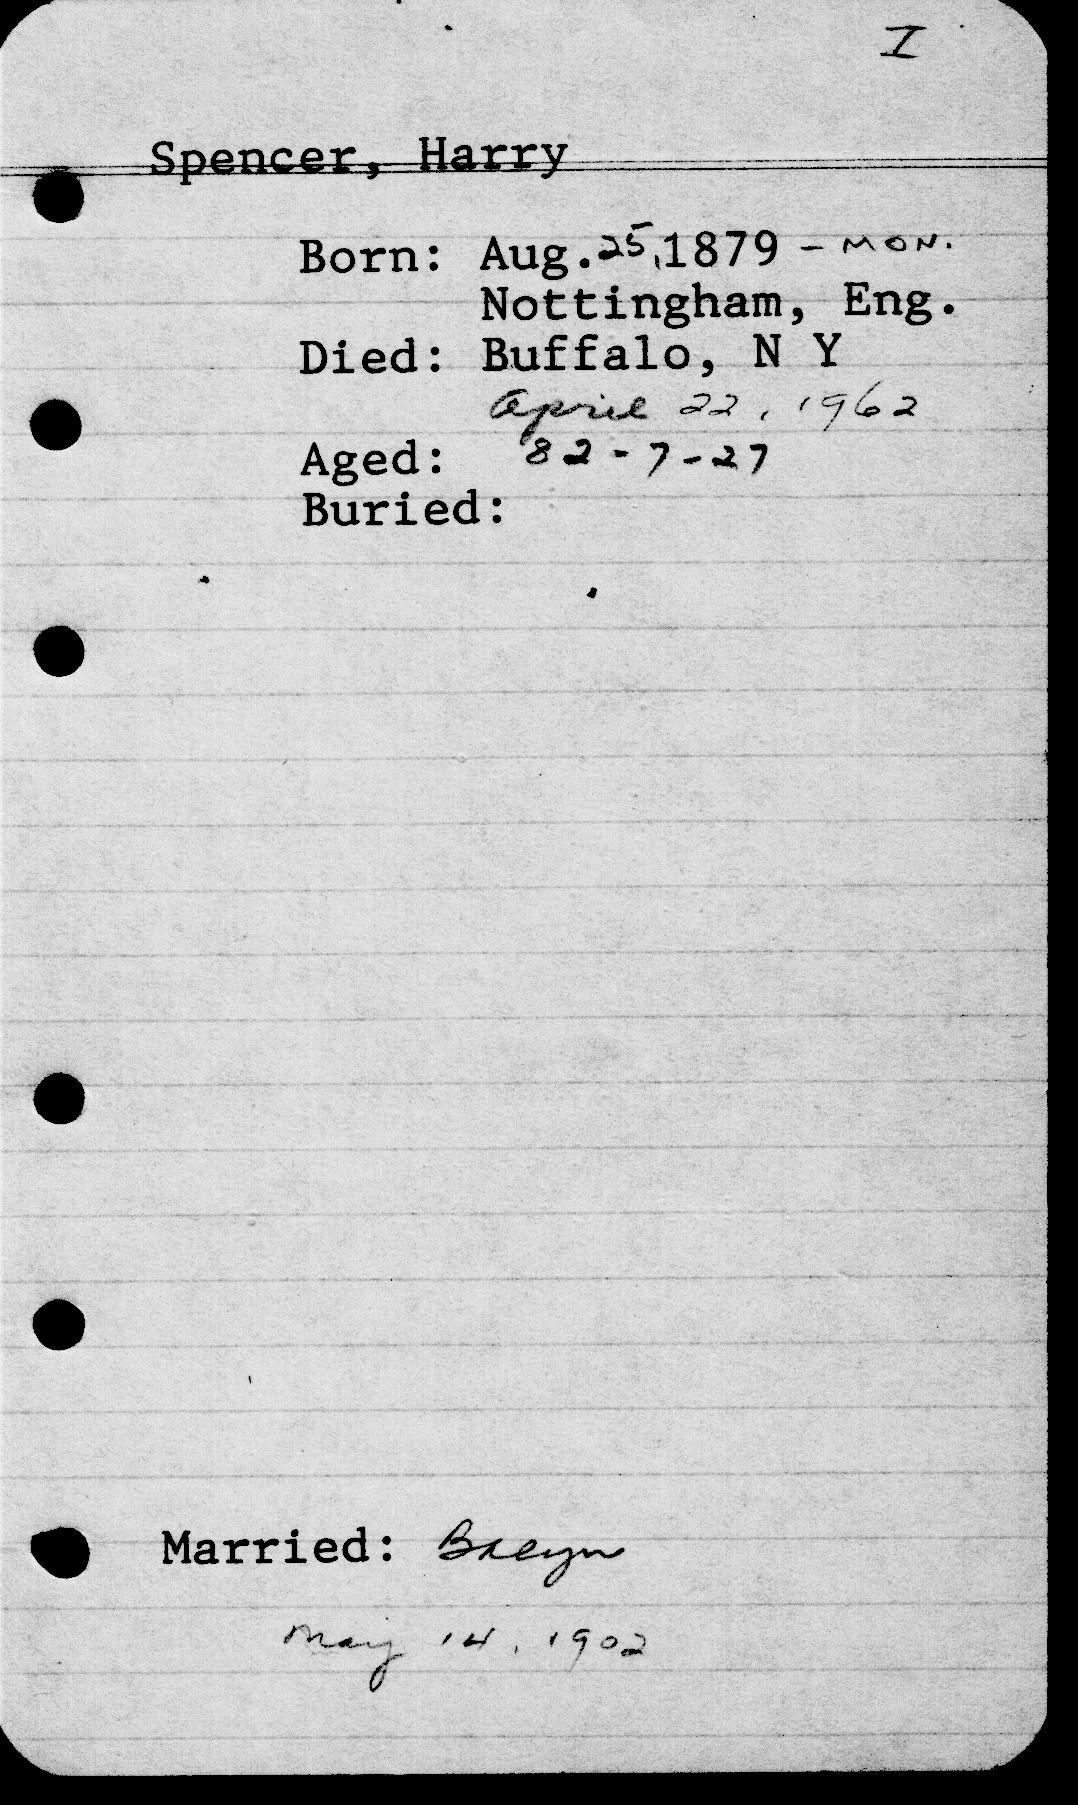 I
Spencer, Harry
Born: Aug. 25, 1879 - MON.
Nottingham, Eng.
Died: Buffalo, N Y
April 22, 1962
Aged: 82-7-27
Buried:
Married:
May 14, 1902